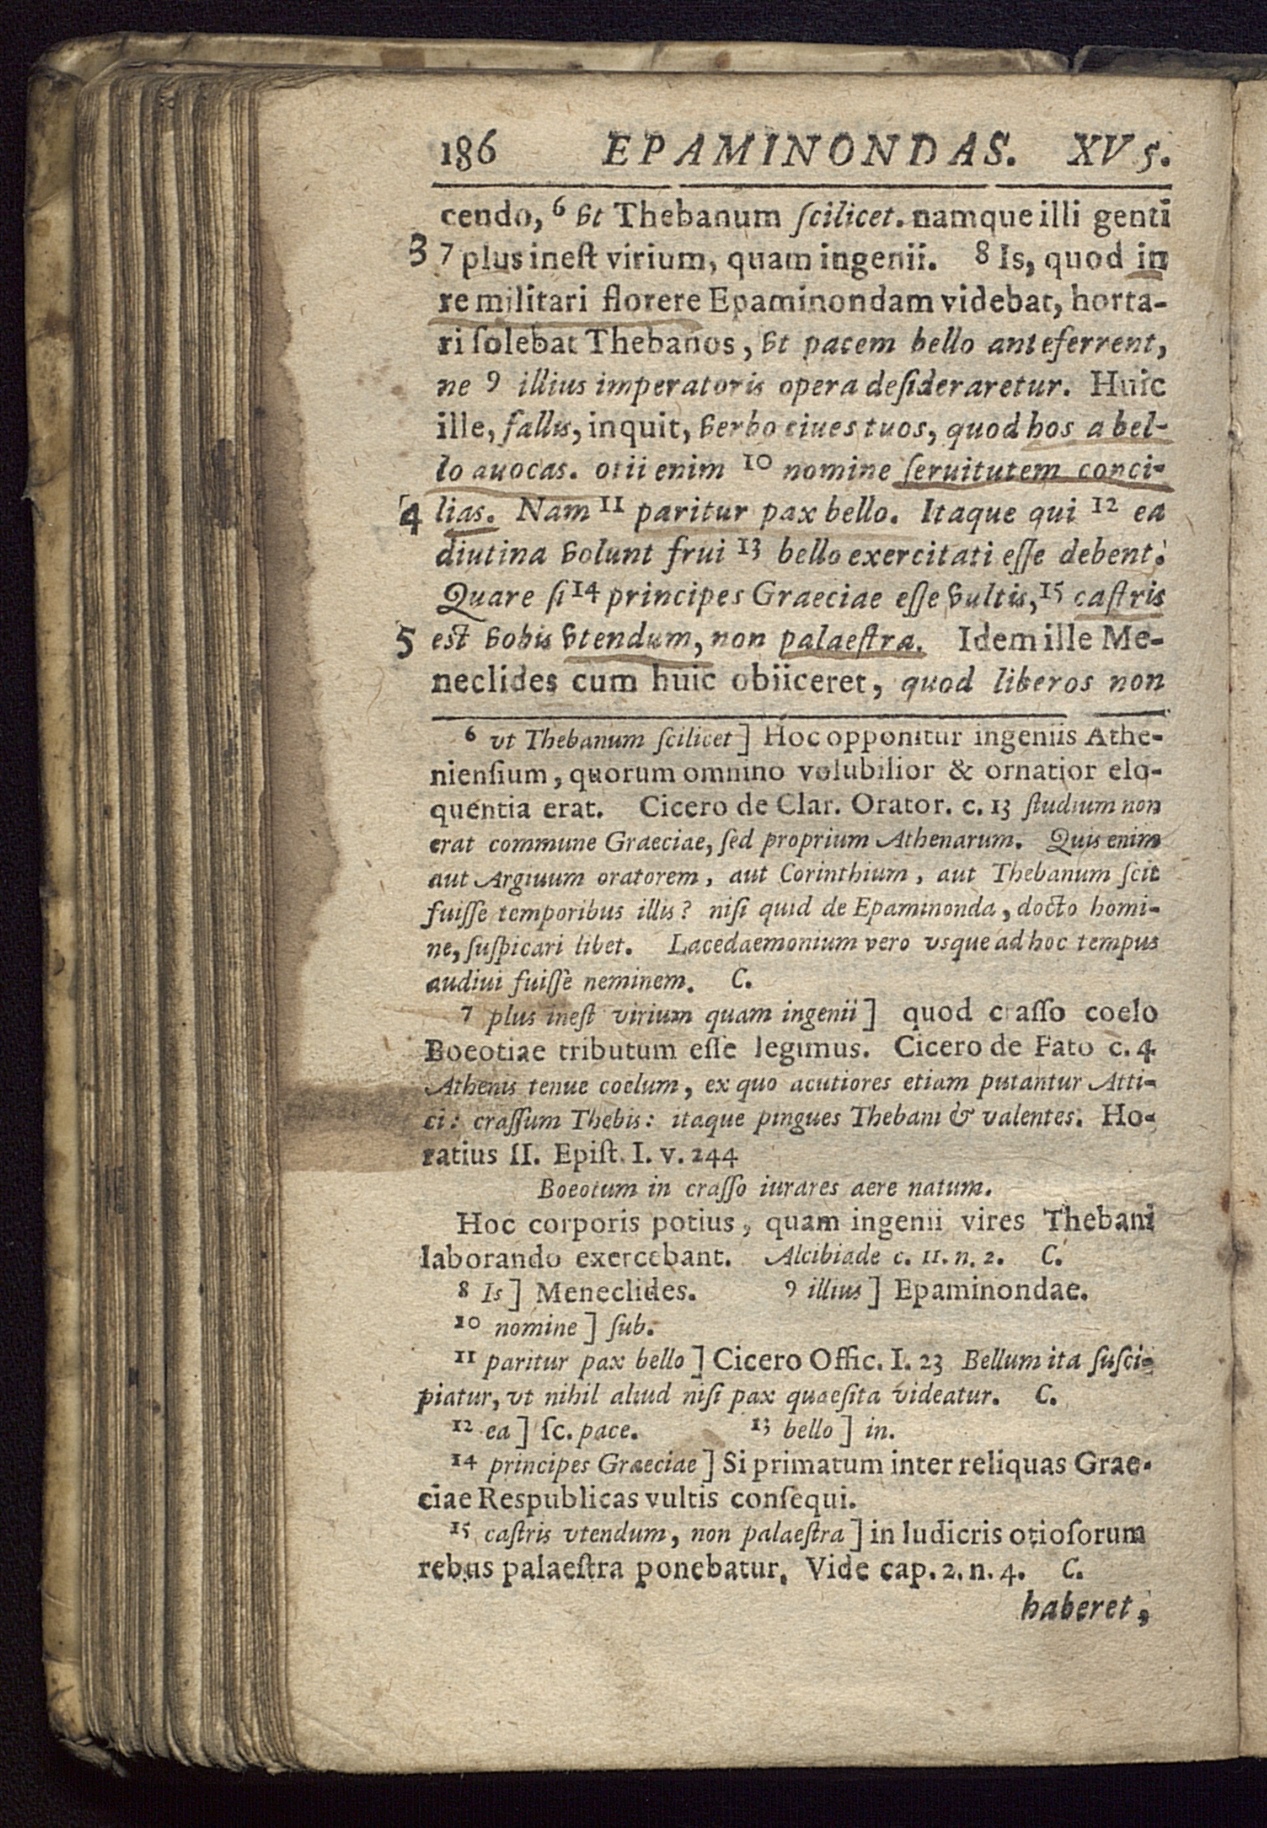 186 EPAMINONDAS. XV 5.
cendo, 6 vt Thebanum ſcilicet. namque illi genti
3 7 plus ineſt virium, quam ingenii. 8 Is, quod in
re militari florere Epaminondam videbat, horta-
ri ſolebat Thebanos, vt pacem bello anteferrent,
ne 9 illius imperatoris opera deſideraretur. Huic
ille, fallis, inquit, verbo ciues tuos, quod hos a bel-
lo auocas. otii enim 10 nomine ſeruitutem conci-
4 lias. Nam 11 paritur pax bello. Itaque qui 12 ea
diutina volunt frui 13 bello exercitati eſſe debent.
Quare ſi 14 principes Graeciae eſſe vultis, 15 caſtris
5 est vobis vtendum, non palaeſtra. Idem ille Me-
neclides cum huic obiiceret, quod liberos non
6 vt Thebanum ſcilicet] Hoc opponitur ingeniis Athe-
nienſium, quorum omnino volubilior & ornatior elo-
quentia erat. Cicero de Clar. Orator. c. 13 ſtudium non
erat commune Graeciae, ſed proprium Athenarum. Quis enim
aut Argiuum oratorem, aut Corinthium, aut Thebanum ſcit
fuiſſe temporibus illis? niſi quid de Epaminonda, docto homi-
ne, ſuſpicari libet. Lacedaemonium vero vsque ad hoc tempus
audiui fuiſſe neminem. C.
7 plus ineſt virium quam ingenii] quod craſſo coelo
Boeotiae tributum eſſe legimus. Cicero de Fato c. 4
Athenis tenue coelum, ex quo acutiores etiam putantur Atti-
ci: craſſum Thebis: itaque pingues Thebani & valentes. Ho-
ratius II. Epiſt. I. v. 244
Boeotum in craſſo iurares aere natum.
Hoc corporis potius, quam ingenii vires Thebani
laborando exercebant. Alcibiade c. 11. n. 2. C.
8 Is] Meneclides. 9 illius] Epaminondae.
10 nomine] ſub.
11 paritur pax bello] Cicero Offic. I. 23 Bellum ita ſuſci-
piatur, vt nihil aliud niſi pax quaeſita videatur. C.
12 ea] ſc. pace. 13 bello] in.
14 principes Graeciae] Si primatum inter reliquas Grae-
ciae Respublicas vultis conſequi.
15 caſtris vtendum, non palaeſtra] in ludicris otioſorum
rebus palaeſtra ponebatur. Vide cap. 2. n. 4. C.
haberet,